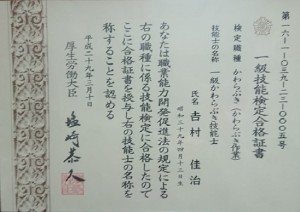 第一六-一-一〇三九-二三-〇〇〇五号
一級技能検定合格証書
検定職種 かわらぶき(かわらぶき作業)
技能士の名称 一級かわらぶき技能士
氏名 吉村 佳治
昭和三十九年四月十三日生
あなたは職業能力開発促進法の規定による
右の職種に係る技能検定に合格したので
ここに合格証書を授与し右の技能士の名称を
称することを認める
平成二十九年三月十日
厚生労働大臣
塩崎恭久